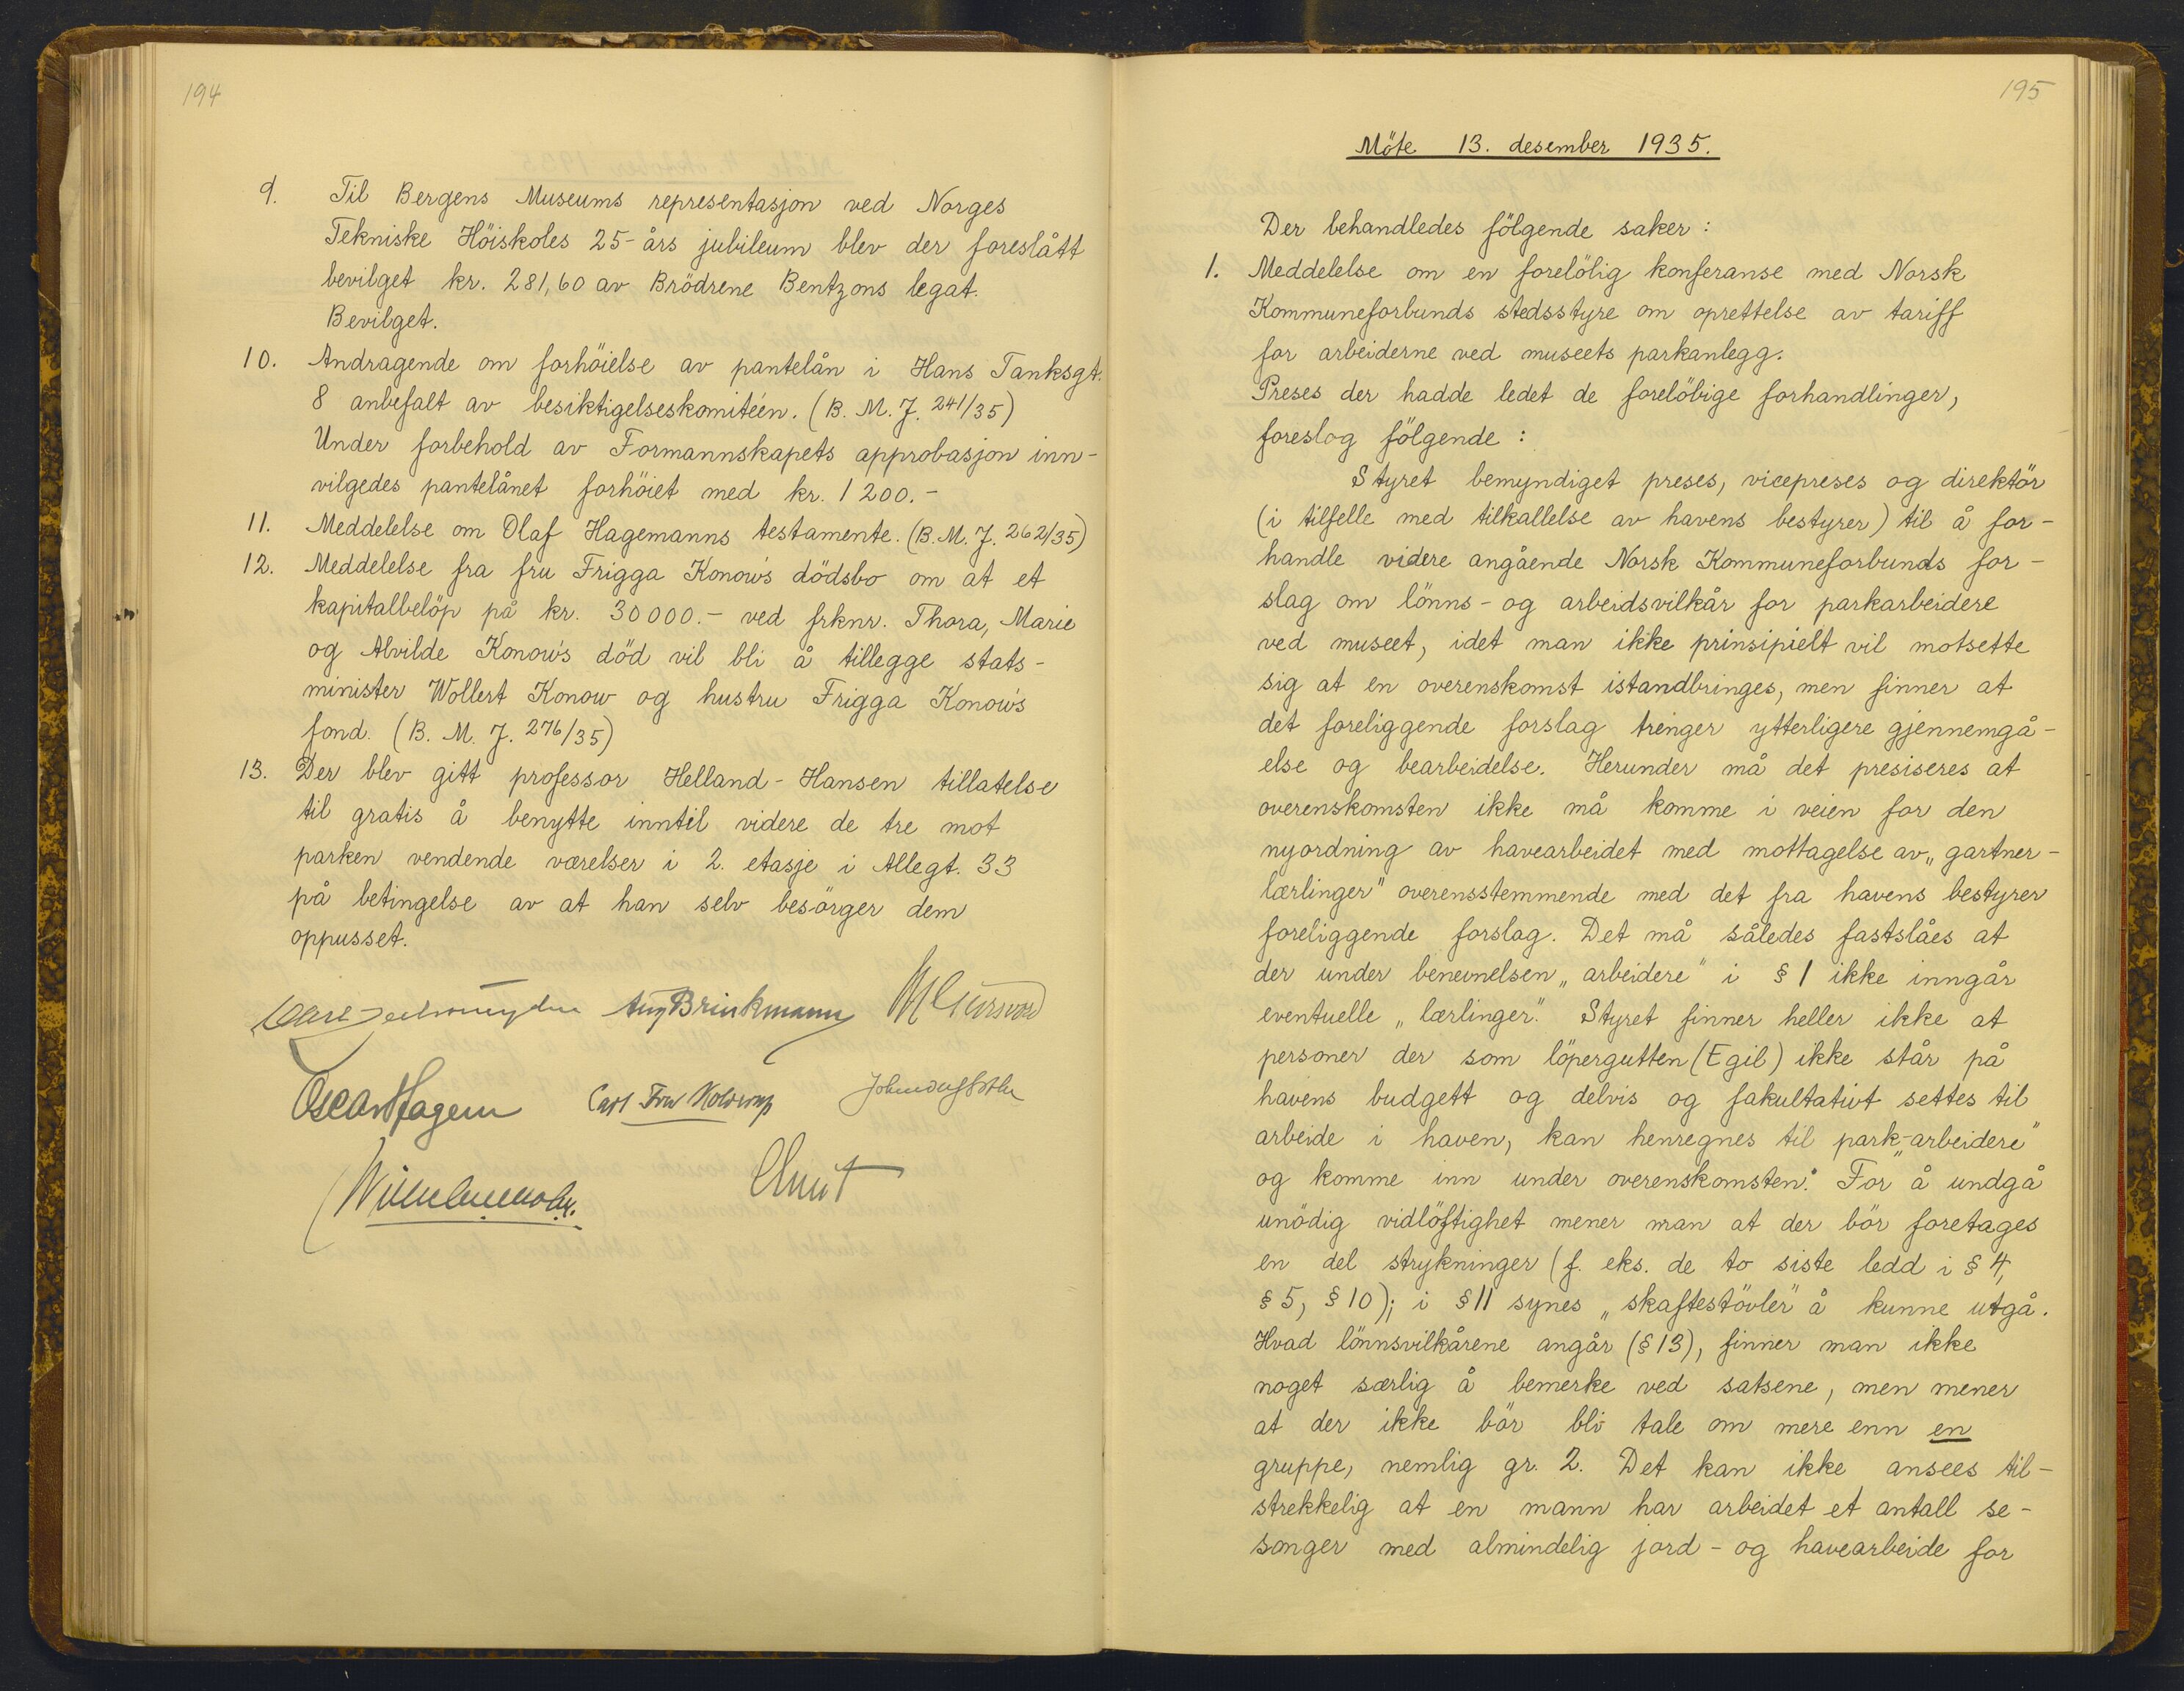 194
9. Til Bergens Museums representasjon ved Norges
Tekniske Höiskoles 25-års jubileum blev der foreslått
bevilget kr. 281,60 av Brödrene Bentzons legat.
Bevilget.
10. Andragende om forhöielse av pantelån i Hans Tanksgt.
8 anbefalt av besiktigelseskomitéen. (B. M. J. 241/35)
Under forbehold av Formannskapets approbasjon inn-
vilgedes pantelånet forhöiet med kr. 1200.-
11. Meddelelse om Olaf Hagemanns testamente. (B. M. J. 262/35)
12. Meddelelse fra fru Frigga Konow's dödsbo om at et
kapitalbelöp på kr. 30000.- ved frknr. Thora, Marie
og Alvilde Konow's död vil bli å tillegge stats-
minister Wollert Konow og hustru Frigga Konow's
fond. (B. M. J. 276/35)
13. Der blev gitt professor Helland-Hansen tillatelse
til gratis å benytte inntil videre de tre mot
parken vendende værelser i 2. etasje i Allegt. 33
på betingelse av at han selv besörger dem
oppusset.
Aug Brinkmann
Oscar Hagem Carl Fred Kolderup
195
Möte 13. desember 1935.
Der behandledes fölgende saker:
1. Meddelelse om en forelölig konferanse med Norsk
Kommuneforbunds stedsstyre om oprettelse av tariff
for arbeiderne ved museets parkanlegg.
Preses der hadde ledet de forelöbige forhandlinger,
foreslog fölgende:
Styret bemyndiget preses, vicepreses og direktör
(i tilfelle med tilkallelse av havens bestyrer) til å for-
handle videre angående Norsk Kommuneforbunds for-
slag om lönns- og arbeidsvilkår for parkarbeidere
ved museet, idet man ikke prinsipielt vil motsette
sig at en overenskomst istandbringes, men finner at
det foreliggende forslag trenger ytterligere gjennemgå-
else og bearbeidelse. Herunder må det presiseres at
overenskomsten ikke må komme i veien for den
nyordning av havearbeidet med mottagelse av „gartner-
lærlinger" overensstemmende med det fra havens bestyrer
foreliggende forslag. Det må således fastslåes at
der under benevnelsen „arbeidere" i § 1 ikke inngår
eventuelle „lærlinger". Styret finner heller ikke at
personer der som löpergutten (Egil) ikke står på
havens budgett og delvis og fakultativt settes til
arbeide i haven, kan henregnes til „park-arbeidere"
og komme inn under overenskomsten. For å undgå
unödig vidlöftighet mener man at der bör foretages
en del strykninger (f. eks. de to siste ledd i § 4,
§ 5, § 10); i § 11 synes „skaftestövler" å kunne utgå.
Hvad lönnsvilkårene angår (§ 13), finner man ikke
noget særlig å bemerke ved satsene, men mener
at der ikke bör bli tale om mere enn en
gruppe, nemlig gr. 2. Det kan ikke ansees til-
strekkelig at en mann har arbeidet et antall se-
songer med almindelig jord- og havearbeide for